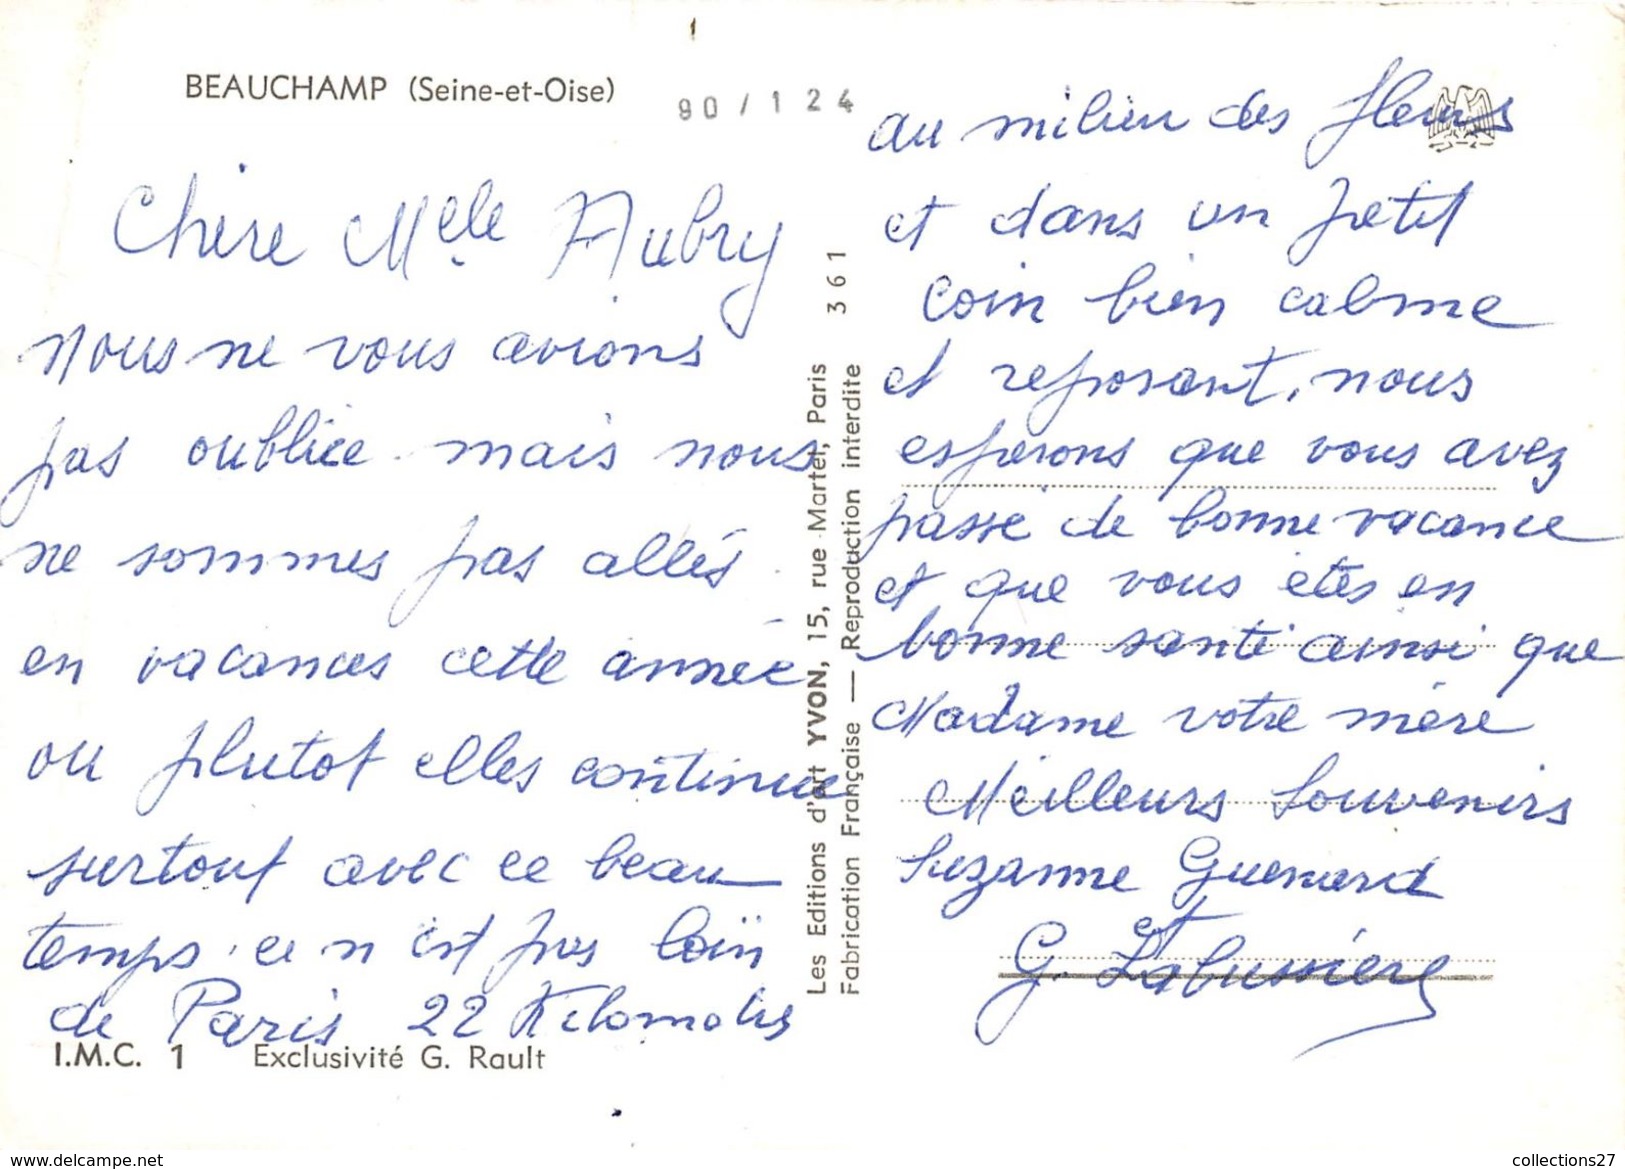 BEAUCHAMP (Seine-et-Oise)
90 / 124
Chère Melle Aubry
nous ne vous avions
pas oubliée mais nous
ne sommes pas allés
en vacances cette année
ou plutot elles continue
surtout avec ce beau
temps. ce n'est pas loin
de Paris 22 Kilometres
I.M.C. 1 Exclusivité G. Rault
Les Editions d'art YVON, 15, rue Martel, Paris 361
Fabrication Française — Reproduction interdite
au milieu des fleurs
et dans un petit
coin bien calme
et reposant, nous
esperons que vous avez
passé de bonne vacance
et que vous étes en
bonne santé ainsi que
Madame votre mère
Meilleurs Souvenirs
Suzanne Guenard
et
G. Labussière
collections27
www.delcampe.net